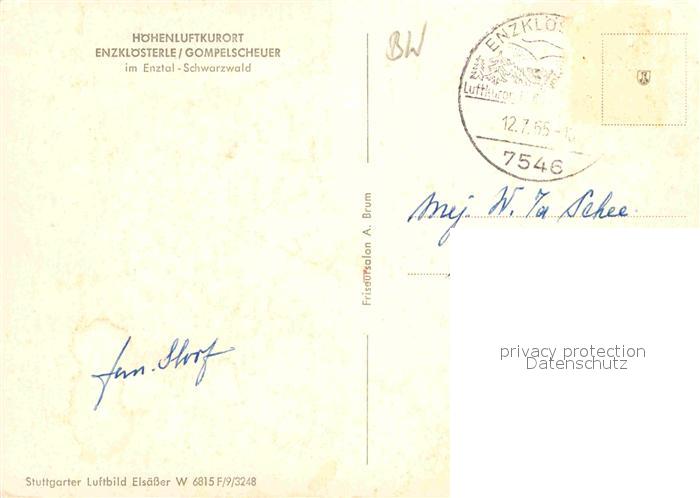 HÖHENLUFTKURORT
ENZKLÖSTERLE/GOMPELSCHEUER
im Enztal - Schwarzwald
BW
ENZKLÖS
Luftkuror
12.7.65-1
7546
Mej. W. Ja Schee
Friseursalon A. Brum
privacy protection
Datenschutz
fam. Slorf
Stuttgarter Luftbild Elsäßer W 6815 F/9/3248